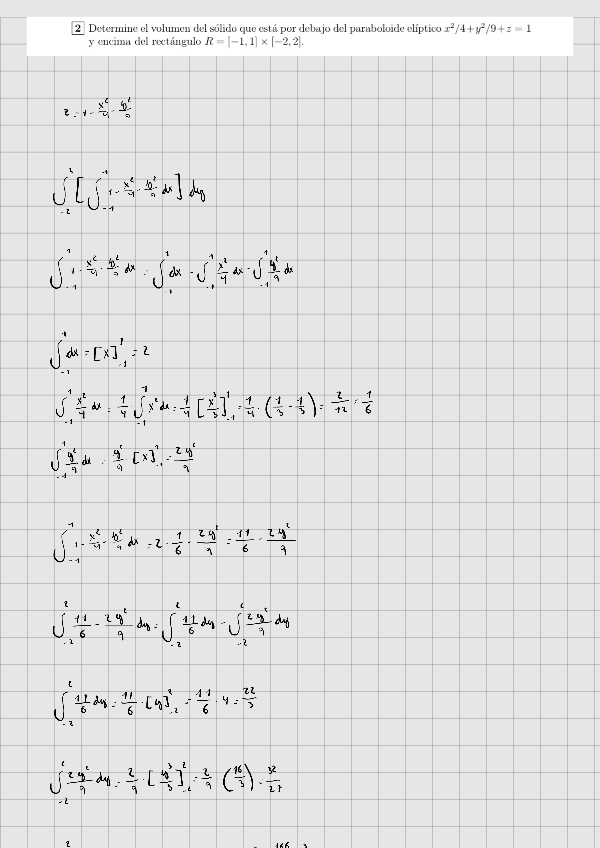 2 Determine el volumen del sólido que está por debajo del paraboloide elíptico x²/4+y²/9+z = 1
y encima del rectángulo R = [−1, 1] × [−2, 2].
z = 1 - x²/4 - y²/9
∫_{-2}^{2} [ ∫_{-1}^{1} 1 - x²/4 - y²/9 dx ] dy
∫_{-1}^{1} 1 - x²/4 - y²/9 dx = ∫_{-1}^{1} dx - ∫_{-1}^{1} x²/4 dx - ∫_{-1}^{1} y²/9 dx
∫_{-1}^{1} dx = [x]_{-1}^{1} = 2
∫_{-1}^{1} x²/4 dx = 1/4 ∫_{-1}^{1} x² dx = 1/4 [x³/3]_{-1}^{1} = 1/4 · (1/3 - 1/3) = 2/12 = 1/6
∫_{-1}^{1} y²/9 dx = y²/9 · [x]_{-1}^{1} = 2y²/9
∫_{-1}^{1} 1 - x²/4 - y²/9 dx = 2 - 1/6 - 2y²/9 = 11/6 - 2y²/9
∫_{-2}^{2} 11/6 - 2y²/9 dy = ∫_{-2}^{2} 11/6 dy - ∫_{-2}^{2} 2y²/9 dy
∫_{-2}^{2} 11/6 dy = 11/6 · [y]_{-2}^{2} = 11/6 · 4 = 22/3
∫_{-2}^{2} 2y²/9 dy = 2/9 · [y³/3]_{-2}^{2} = 2/9 (16/3) = 32/27
2 = 166